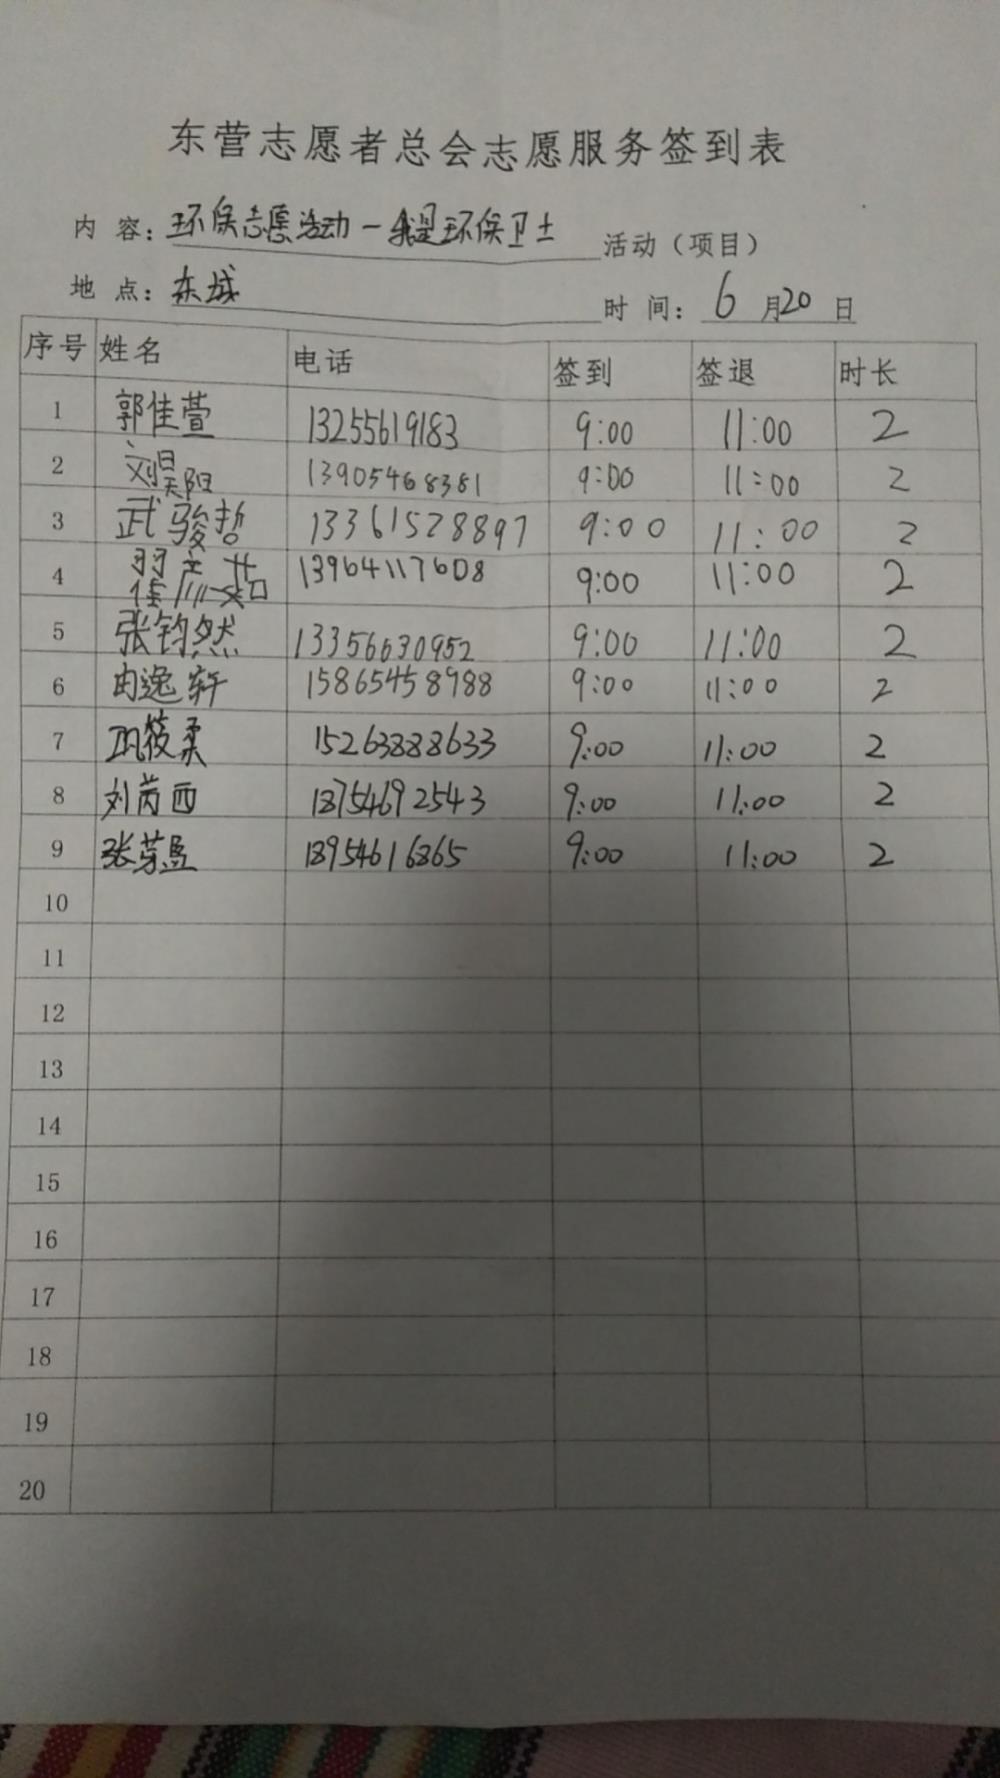 东营志愿者总会志愿服务签到表
内 容：环保志愿活动一我是环保卫士 活动（项目）
地 点：东城 时 间：6月20日
序号 姓名 电话 签到 签退 时长
1 郭佳萱 13255619183 9:00 11:00 2
2 刘昊阳 13905468381 9:00 11:00 2
3 武骏哲 13361528897 9:00 11:00 2
4 13964117608 9:00 11:00 2
5 张钧然 13356630952 9:00 11:00 2
6 由逸轩 15865458988 9:00 11:00 2
7 巩筱柔 15263888633 9:00 11:00 2
8 刘芮西 18754692543 9:00 11:00 2
9 张芽盈 18954616865 9:00 11:00 2
10
11
12
13
14
15
16
17
18
19
20